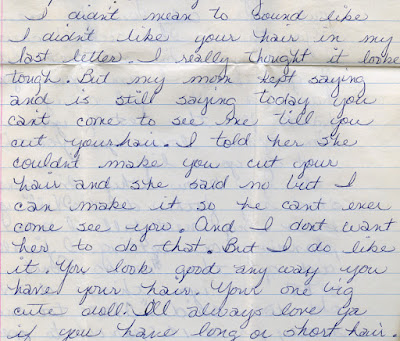 I didn't mean to sound like
I didn't like your hair in my
last letter. I really thought it looke
tough. But my mom kept saying
and is still saying today you
can't come to see me till you
cut your hair. I told her she
couldn't make you cut your
hair and she said no but I
can make it so he cant ever
come see you. And I dont want
her to do that. But I do like
it. You look good any way you
have your hair. Your one big
cute doll. Ill always love ya
if you have long or short hair.